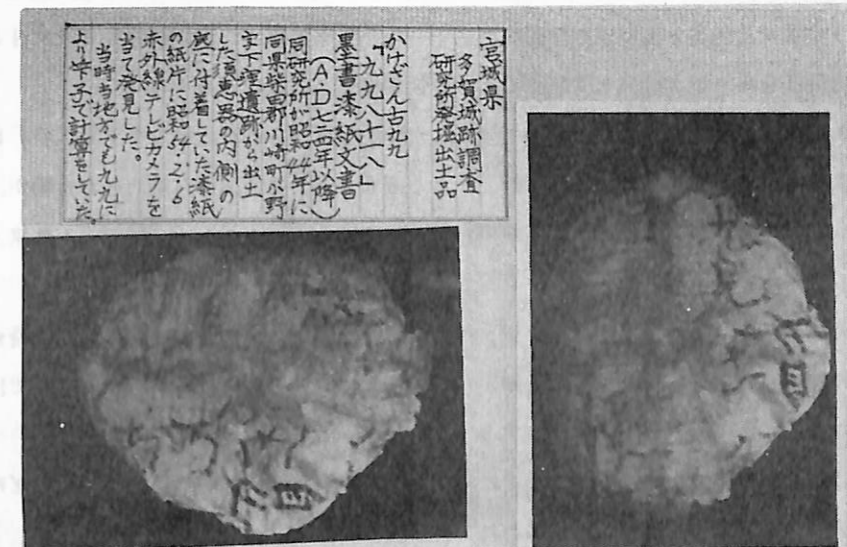 宮城県
多賀城跡調査
研究所発掘出土品
かけざん古九九
『九九八十一八』
墨書漆紙文書
(A.D七三四年以降)
同研究所が昭和44年に
同県柴田郡川崎町小野
字下窪遺跡から出土
した須恵器の内側の
底に付着していた漆紙
の紙片に昭和54.2.6
赤外線テレビカメラを
当て発見した。
当時当地方でも九九に
より 子で計算をしていた。